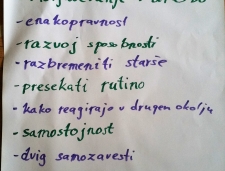 - enakopravnost
- razvoj sposobnosti
- razbremeniti starše
- presekati rutino
- kako reagirajo v drugem okolju
- samostojnost
- dvig samozavesti